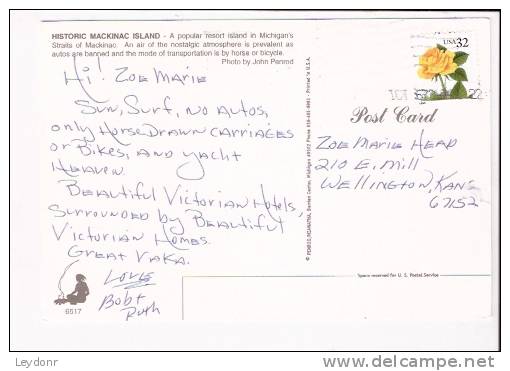 HISTORIC MACKINAC ISLAND - A popular resort island in Michigan's
Straits of Mackinac. An air of the nostalgic atmosphere is prevalent as
autos are banned and the mode of transportation is by horse or bicycle.
Photo by John Penrod
Hi! Zoe Marie
Sun, Surf, no autos,
only Horse Drawn carriages
or Bikes, and yacht
Heaven.
Beautiful Victorian Hotels,
Surrounded by Beautiful
Victorian Homes.
Great Vaka.
Love
Bob &
Ruth
6517
USA 32
Post Card
Zoe Marie Head
210 E. Mill
Wellington, Kans
67152
Space reserved for U. S. Postal Service
Printed in U.S.A.
Leydonr
delcampe.net